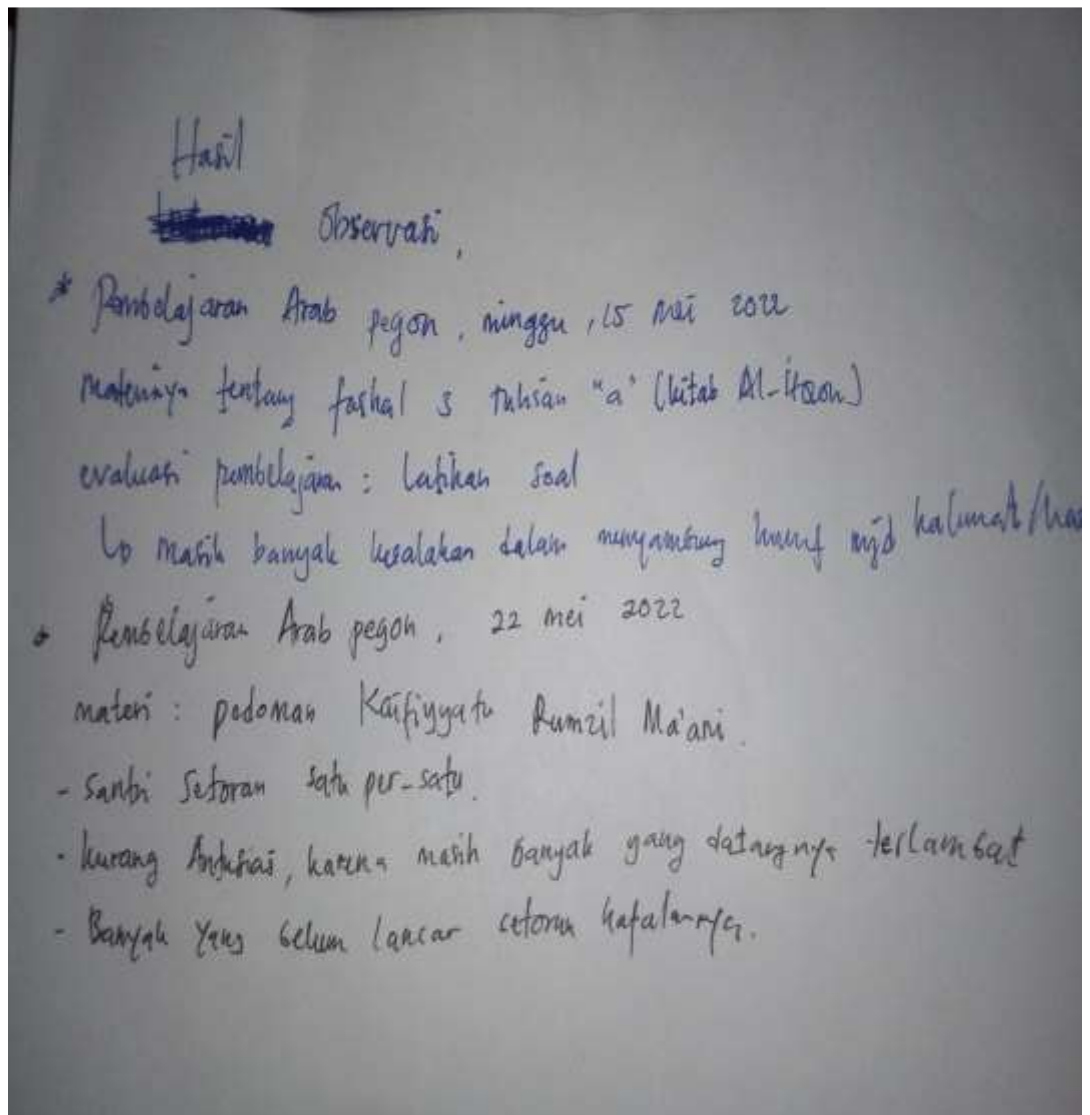 Hasil
Observasi,
* Pembelajaran Arab pegon, minggu, 15 Mei 2022
materinya tentang fashal 3 tulisan "a" (kitab Al-Itqon)
evaluasi pembelajaran : Latihan Soal
↳ masih banyak kesalahan dalam menyambung huruf mjd kalimat/
* Pembelajaran Arab pegon, 22 mei 2022
materi : pedoman Kaifiyyatu Rumzil Ma'ani.
- Santri Setoran satu per-satu.
- kurang Antusias, karena masih banyak yang datangnya terlambat
- Banyak yang belum lancar setoran hafalannya.